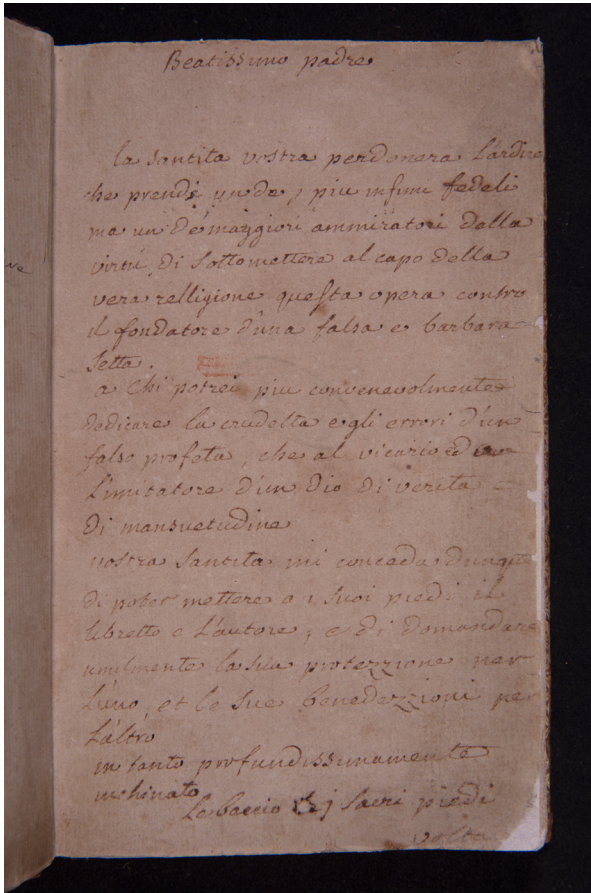 Beatissimo padre
la Santita vostra perdonera L'ardire
che prende un de, piu infimi fedeli
ma un De maggiori ammiratori della
virtu, di Sottomettere al capo della
vera relligione questa opera contro
il fondatore d'una falsa e barbara
Setta.
a Chi potrei piu convenevolmente
Dedicare la crudelta e gli errori d'un
falso profeta, che al vicario ed
L'imitatore d'un Dio di verita
di mansuetudine
vostra Santita mi conceda dunque
di poter mettere a i Suoi piedi il
libretto e L'autore, e di domandare
umilmente la sua protezzione per
L'uno, et le sue benedezzioni per
L'altro
in tanto profundissimamente
inchinato
Le baccio i Sacri piedi